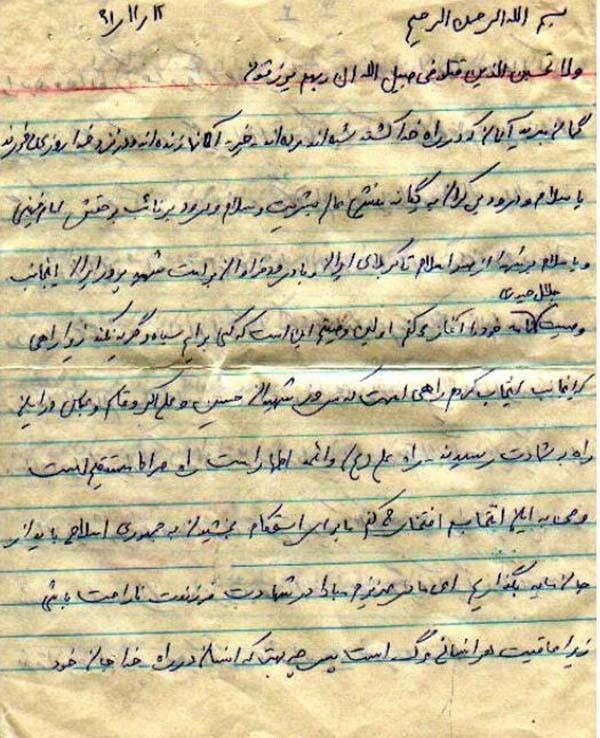 بسم الله الرحمن الرحیم ۶۱/۱۱/۱۲
ولا تحسبن الذین قتلو فی سبیل الله ربهم یرزقون
گمان مبرید آنان که در راه خدا کشته شده اند مرده اند خیر آنها زنده اند و در نزد خدا روزی می خورند
با سلام و درود بی کران به یگانه منجی عالم بشریت و سلام و درود بر نائب بر حقش امام خمینی
و با سلام بر شهدا از صدر اسلام تا کربلای ایران و با درود فراوان بر امت شهید پرور ایران اینجانب
جلال حیدری
وصیت نامه خود را آغاز می کنم اولین وصیتم این است که کسی برایم سیاه و گریه نکند زیرا راهی
که اینجانب انتخاب کردم راهی است که سرور شهیدان حسین و علی اکبر و قاسم و عباس در این
راه به شهادت رسیدند راه علی (ع) و ائمه اطهار است راه صراط مستقیم است
و من به این انتخابم افتخار می کنم ما برای استحکام بخشیدن به جمهوری اسلامی باید از
جان مایه بگذاریم ای مادر عزیزم مبادا در شهادت فرزندت ناراحت باشی
زیرا عاقبت هر انسانی مرگ است پس چه بهتر که انسان در راه خدا جان خود